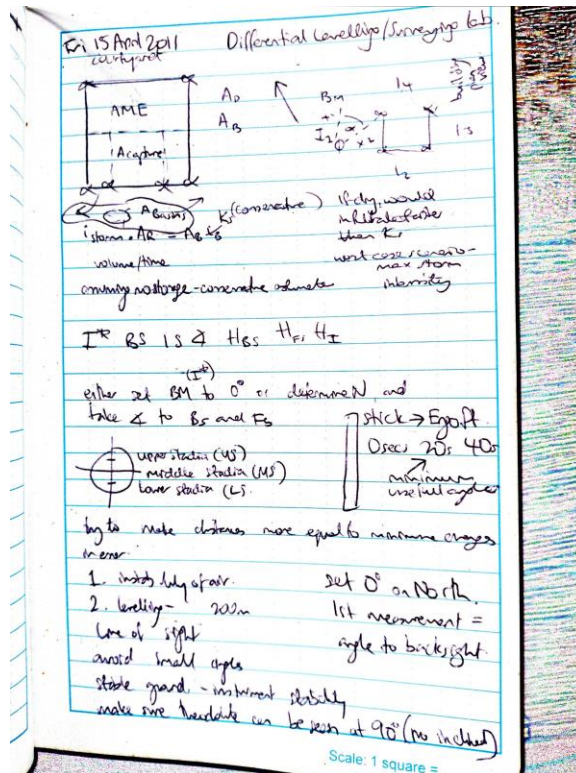 Fri 15 April 2011 Differential Levelling/Surveying Lab.
courtyard
AME
Acapture
AR
AB
BM
I2
x2
l4
l3
l2
building
ABasins
Ks (conservative)
If dry, would
infiltrate faster
than Ks
istorm · AR = AB
volume/time
worst case scenario -
max storm
intensity
assuming no storage - conservative estimate
I* BS IS ∡ HBS HFS HI
(I*)
either set BM to 0° or determine N and
take ∡ to BS and FS
stick →
0secs 20s 40s
minimum
useful angle
upper stadia (US)
middle stadia (MS)
Lower stadia (LS)
try to make distances more equal to minimise changes
in error
1. instability of air.
2. levelling - 200m
line of sight
avoid small angles
stable ground - instrument stability
make sure theodolite can be seen at 90° (no inclined)
set 0° on North.
1st measurement =
angle to backsight.
Scale: 1 square =